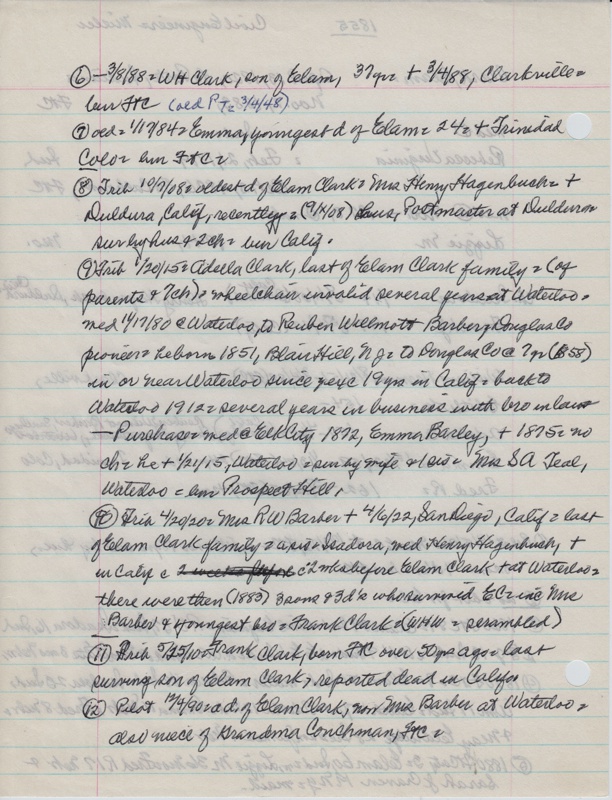 1855 Civil Engineer = Mills
⑥ - 3/8/88 = WH Clark, son of Eelam, 37 yr = + 3/4/88, Clarkville =
bur FtC (oed P T = 3/4/48)
⑦ oed = 1/17/84 = Emma, youngest d of Elam = 24 = + Trinidad
Colo = bur FtC =
⑧ Trib 10/7/08 = oldest d of Elam Clark = Mrs Henry Hagenbuch = +
Duldura, Calif, recently = (9/4/08) Hus, Postmaster at Duldura
sur by hus & 2ch = bur Calif.
⑨ Trib 1/20/15 = Adella Clark, last of Elam Clark family = (of
parents & 7ch) = wheelchair invalid several years at Waterloo =
med 11/17/80 @ Waterloo, to Reuben Willmott Barber, Douglas Co
pioneer = he born 1851, Blair Hill, NJ = to Douglas Co @ 7 yr (1858)
in or near Waterloo since yexc 19 yrs in Calif = back to
Waterloo 1912 = several years in business with bro in law
- Purchase = med @ Elk City 1872, Emma Barley, + 1875 = no
ch = he + 1/21/15, Waterloo = sur by wife & 1 sis = Mrs SA Teal,
Waterloo = bur Prospect Hill.
⑩ Trib 4/20/20 = Mrs RW Barber + 4/6/22, San Diego, Calif = last
of Elam Clark family = a sis = Isadora, med Henry Hagenbush, +
in Calif c 2 weeks before c 2 wks before Elam Clark + at Waterloo =
there were then (1883) 3 sons & 3 d = who survived EC = inc Mrs
Barber & youngest bro = Frank Clark = (WHW = scrambled)
⑪ Trib 5/25/10 = Frank Clark, born FtC over 50 yrs ago = last
surving son of Elam Clark, reported dead in Calif.
⑫ Pilot 12/4/90 = a d of Elam Clark, now Mrs Barber at Waterloo =
also niece of Grandma Conchman, FtC =